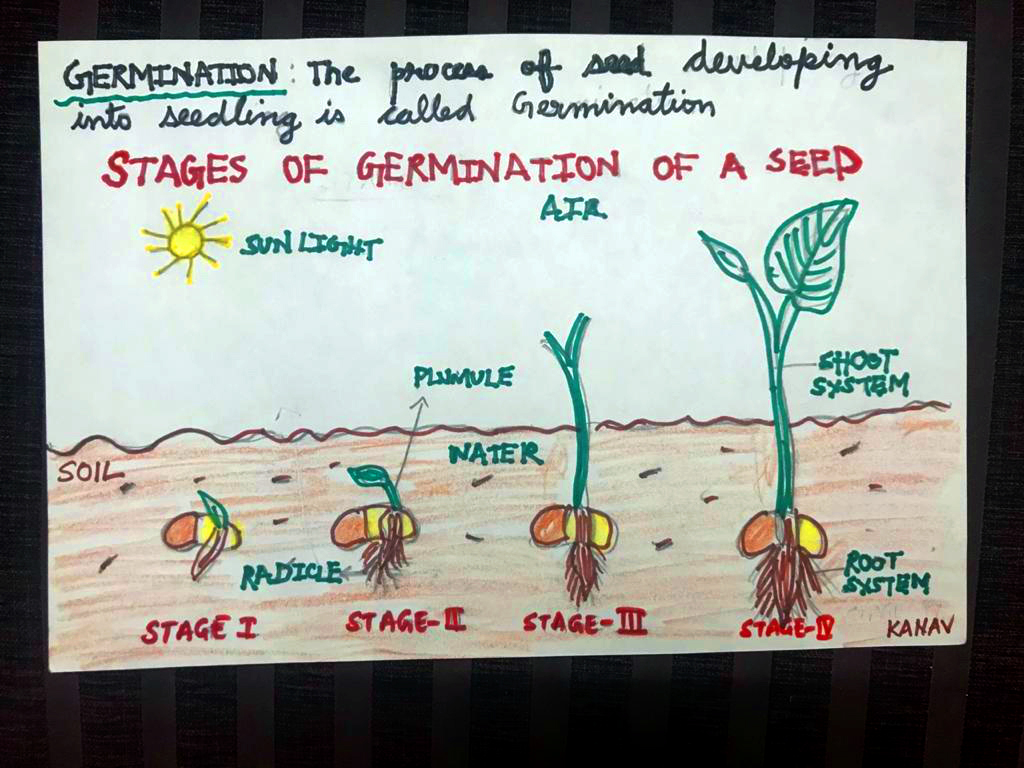 GERMINATION: The process of seed developing
into seedling is called Germination
STAGES OF GERMINATION OF A SEED
AIR
SUNLIGHT
SHOOT
SYSTEM
PLUMULE
WATER
SOIL
RADICLE
ROOT
SYSTEM
STAGE I
STAGE-II
STAGE-III
STAGE-IV
KANAV